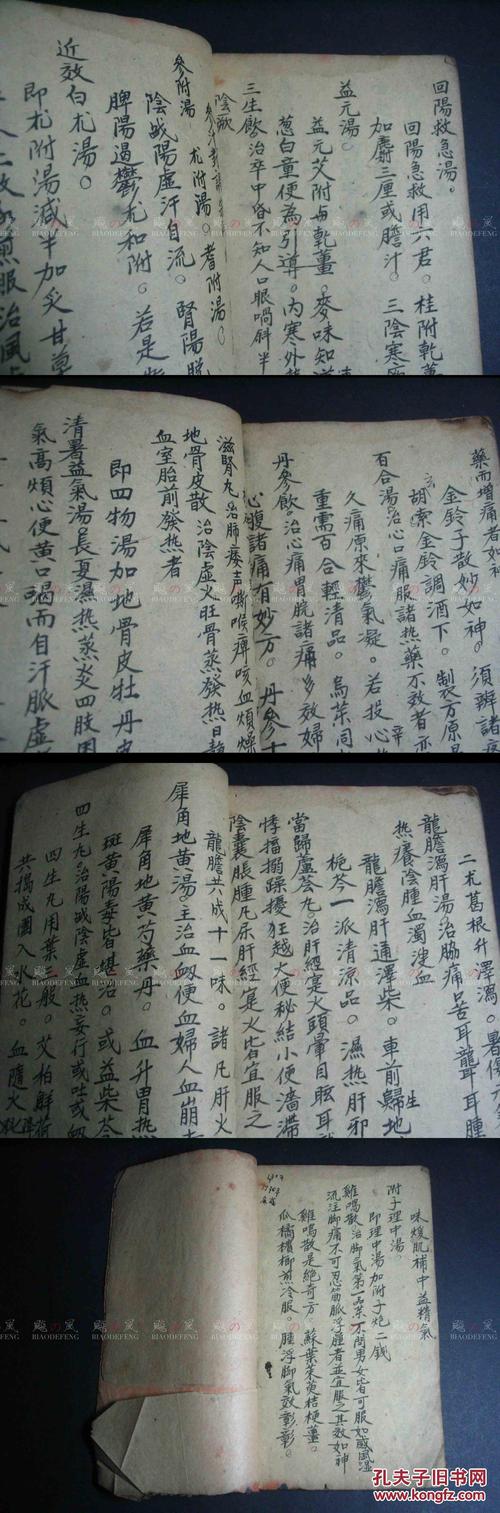 回陽救急湯。
回陽急救用六君。桂附乾薑
加麝三厘或膽汁。三陰寒
益元湯。
益元艾附与乾薑。麥味知
葱白童便為引導。内寒外
三生飲治卒中昏不知人口眼喎斜半
陰厥
參附湯 朮附湯。耆附湯。
陰盛陽虛汗自流。腎陽脫
脾陽遏鬱朮和附。若是
近效白朮湯。
即朮附湯減半加炙甘草
煎服治風
藥而增痛者如神
金鈴子散妙如神。須辨諸
胡索金鈴調酒下。製方原是
百合湯治心口痛服諸热藥不效者亦
久痛原來鬱氣凝。若投心
重需百合輕清品。烏藥同
丹參飲。治心痛胃脘諸痛多效婦
心腹諸痛有妙方。丹參十
滋腎丸治肺痿声嘶喉痺咳血煩燥
地骨皮散 治陰虛火旺骨蒸發热日静
血室胎前發热者
即四物湯加地骨皮牡丹皮
清暑益氣湯長夏濕热蒸炎四肢困
氣高煩心便黄口渴而自汗脈虛
二朮葛根升澤瀉。暑傷六
龍膽瀉肝湯治脇痛口苦耳聾耳腫
热癢陰腫血濁溲血
龍膽瀉肝通澤柴。車前歸地
生
梔芩一派清凉品。濕热肝邪
當歸蘆薈丸。治肝經是火頭暈目眩耳
悸搐搦躁擾狂越大便秘結小便濇滯
陰囊脹腫凡屎肝經是火皆宜服之
龍膽共成十一味。諸凡肝火
犀角地黄湯。主治血衂便血婦人血崩
犀角地黄芍藥丹。血升胃热
斑黄陽毒皆堪治。或益柴芩
四生丸治陽盛陰虛血热妄行或吐或衂
四生丸用葉三般。艾柏鮮荷
共搗成團入水花。血隨火
味煖肌補中益精氣
附子理中湯。
即理中湯加附子炮二錢
雞鳴散。治脚氣第一品藥不問男女皆可服如感風濕
流注脚痛不可忍筋脈浮腫者並宜服之其效如神
雞鳴散是絶奇方。蘇葉茱萸桔梗薑。
瓜橘檳榔煎冷服。腫浮脚氣效彰彰。
飚の罴
BIAODEFENG
孔夫子旧书网
www.kongfz.com